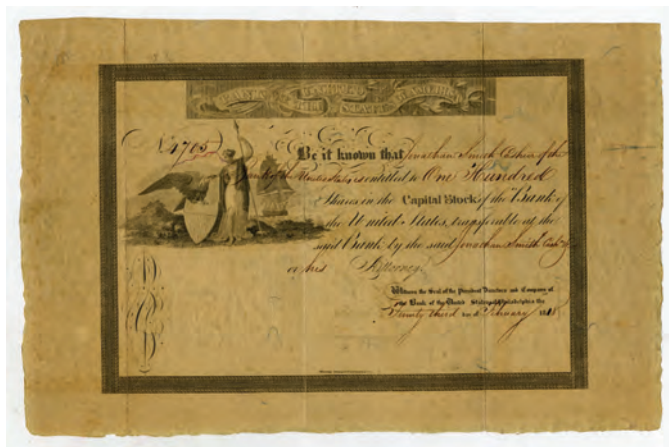 No 1705
Be it known that Jonathan Smith Cashier of the
Bank of the United States is entitled to One Hundred
Shares in the Capital Stock of the Bank of
the United States, transferable at the
said Bank by the said Jonathan Smith Cash
or his Attorney.
Witness the Seal of the President Directors and Company of
the Bank of the United States at Philadelphia the
Twenty third day of February